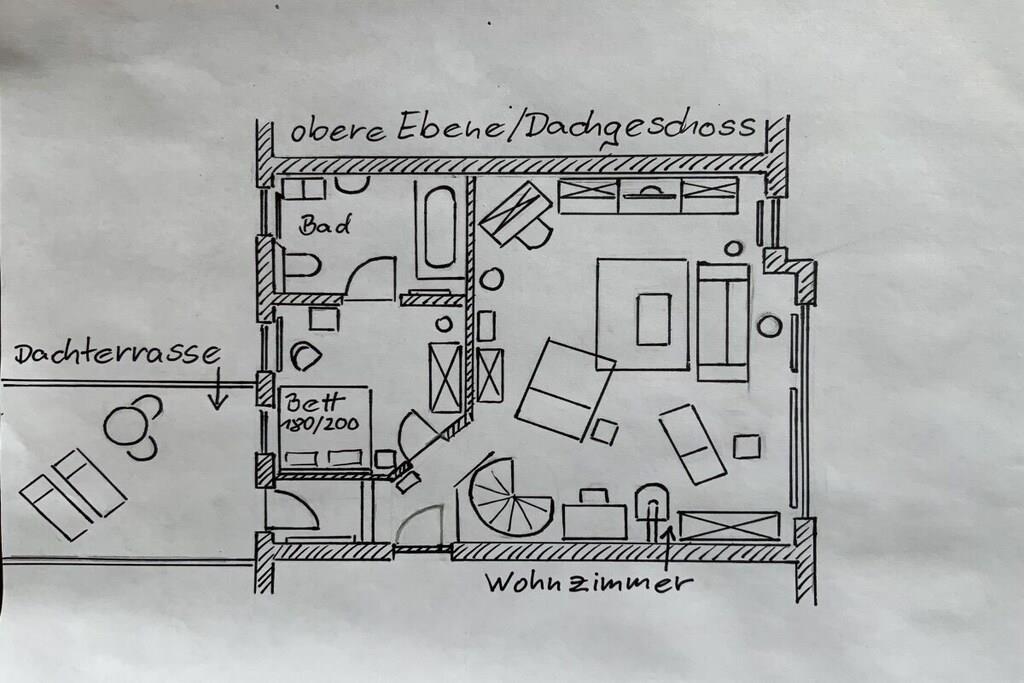 obere Ebene/Dachgeschoss
Bad
Dachterrasse
Bett
180/200
Wohnzimmer